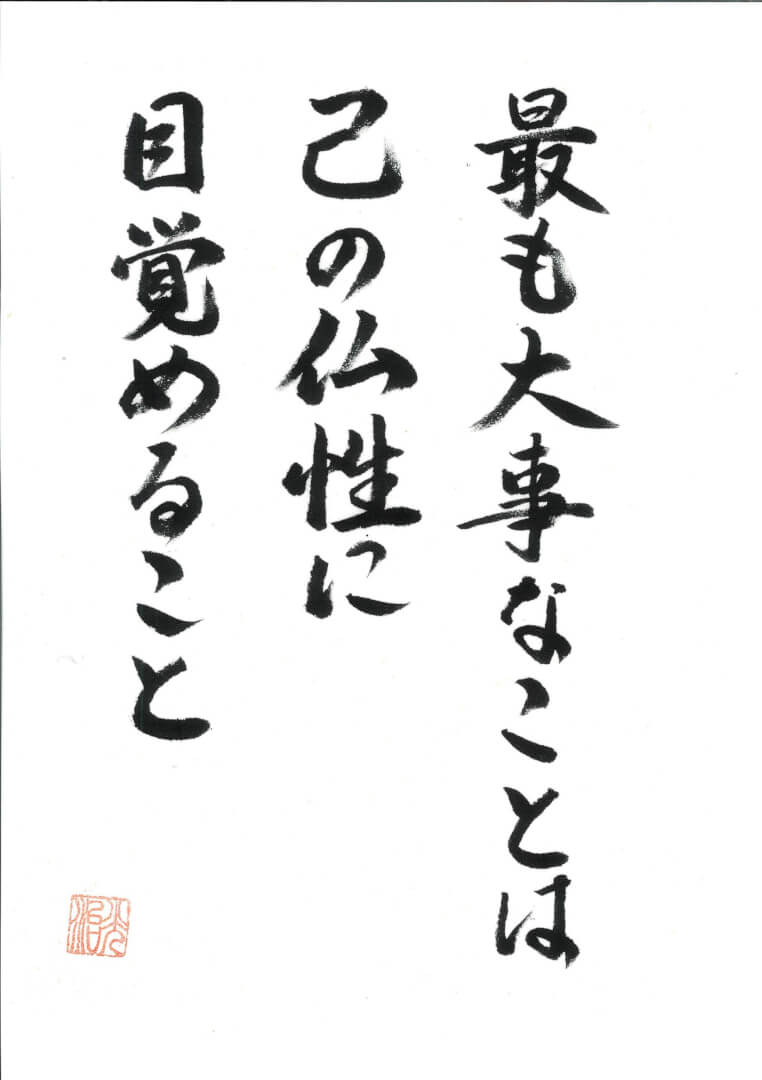 最も大事なことは
己の仏性に
目覚めること